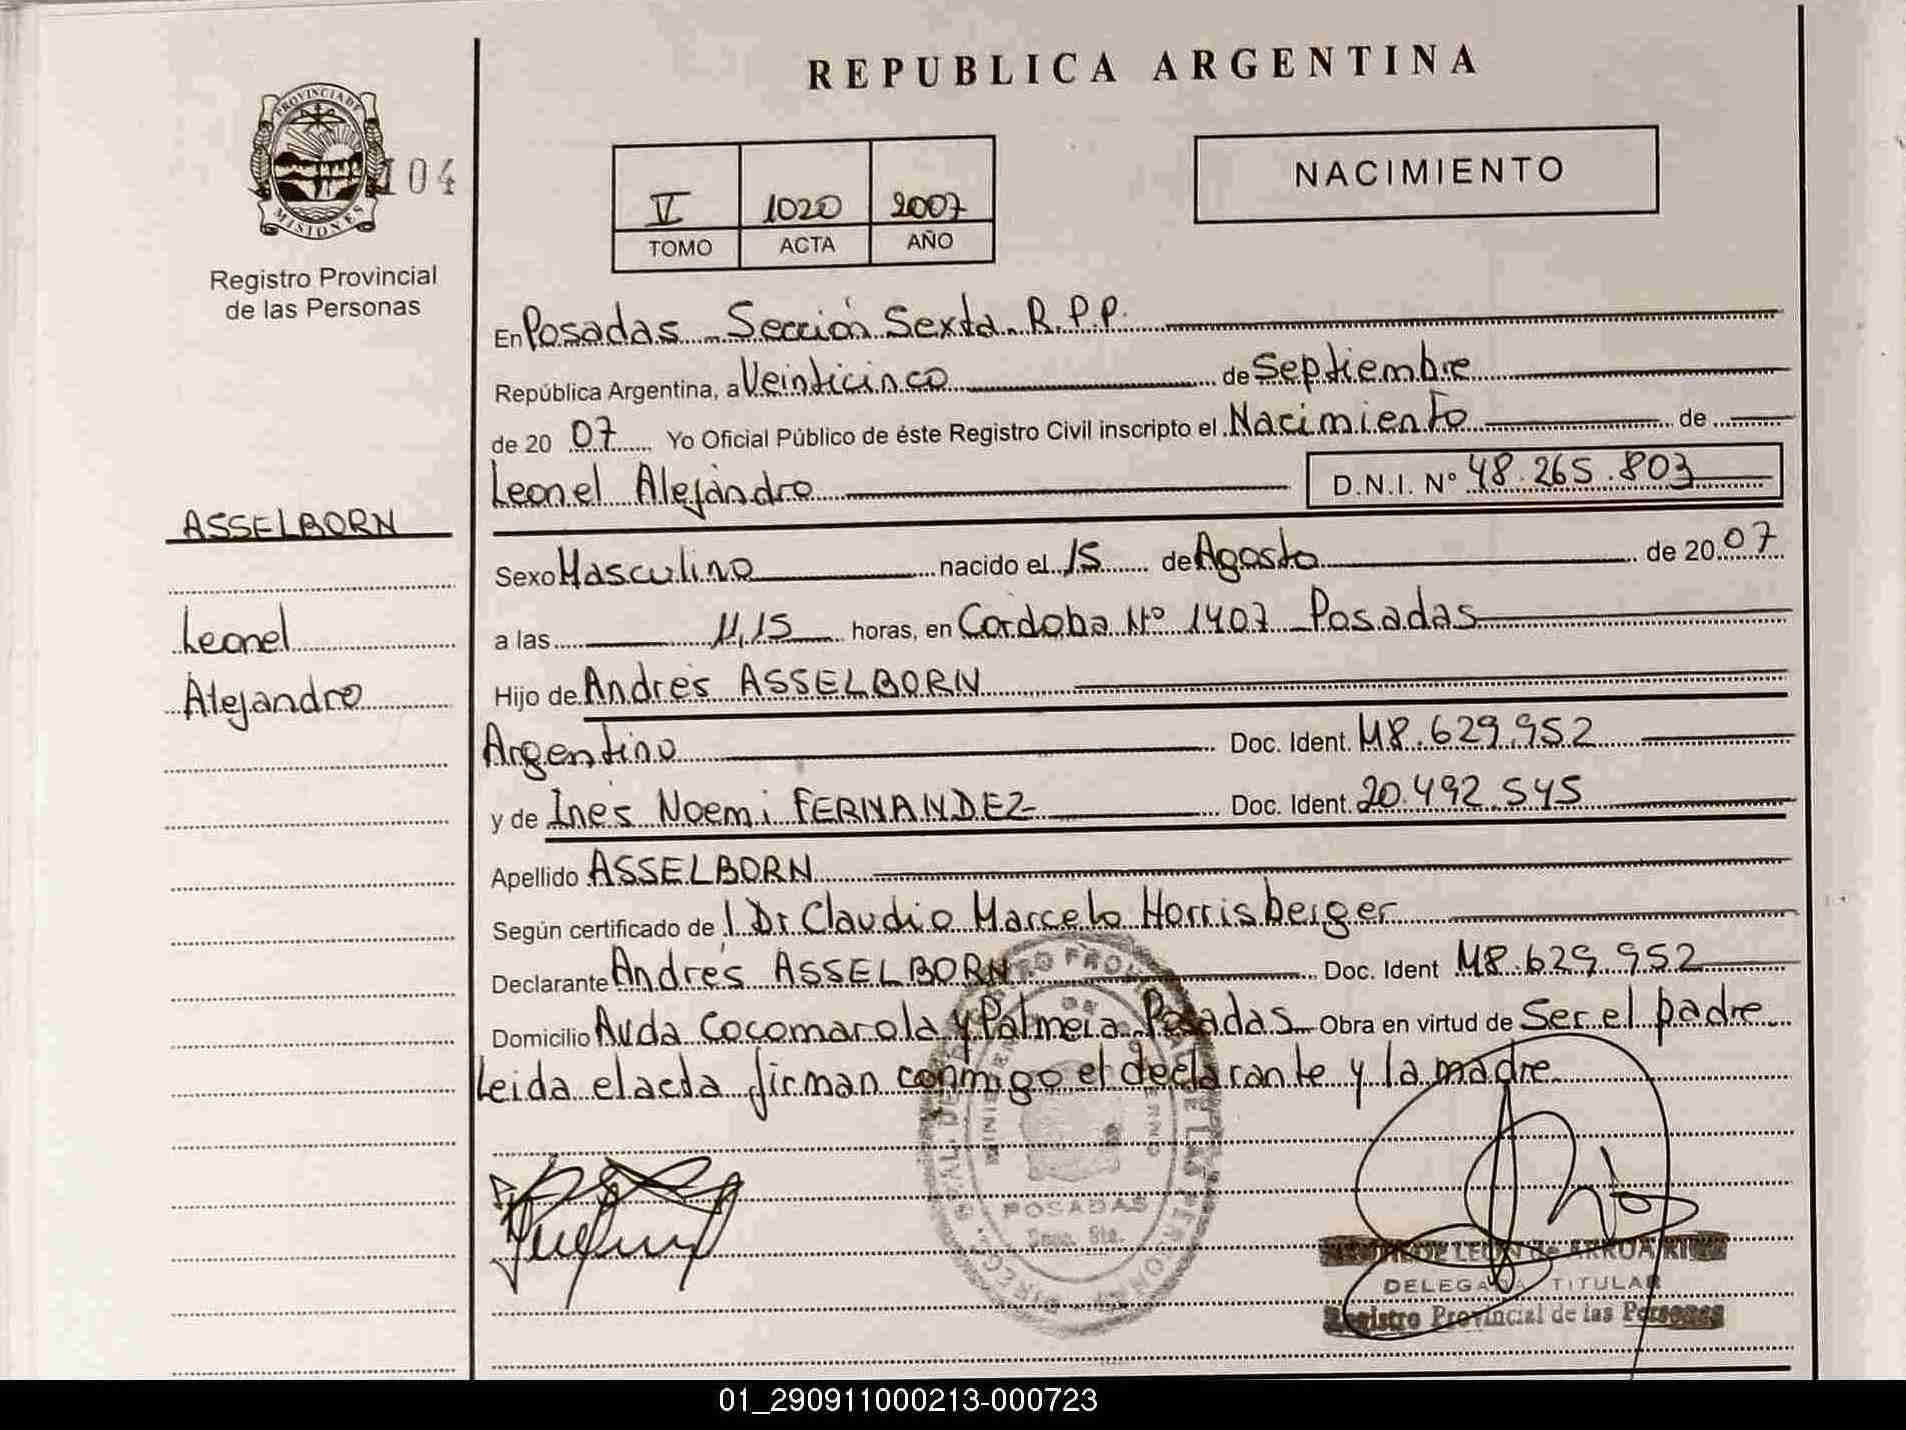 REPUBLICA ARGENTINA
PROVINCIA DE
MISIONES
104
Registro Provincial
de las Personas
V 1020 2007
TOMO ACTA AÑO
NACIMIENTO
En Posadas Sección Sexta R.P.P.
República Argentina, a Veinticinco de Septiembre
de 20 07 Yo Oficial Público de éste Registro Civil inscripto el Nacimiento de
Leonel Alejandro D.N.I. Nº 48.265.803
ASSELBORN
Leonel
Alejandro
Sexo Masculino nacido el 15 de Agosto de 20 07
a las 11,15 horas, en Córdoba Nº 1407 Posadas
Hijo de Andrés ASSELBORN
Argentino Doc. Ident. M8.629.952
y de Inés Noemi FERNANDEZ Doc. Ident. 20.492.545
Apellido ASSELBORN
Según certificado de l Dr Claudio Marcelo Horrisberger
Declarante Andrés ASSELBORN Doc. Ident M8.629.952
Domicilio Avda Cocomarola y Palmera Posadas Obra en virtud de Ser el padre
Leida el acta firman conmigo el declarante y la madre
POSADAS
Secc. 6ta.
LEON de ARRUA
DELEGADA TITULAR
Registro Provincial de las Personas
01_290911000213-000723